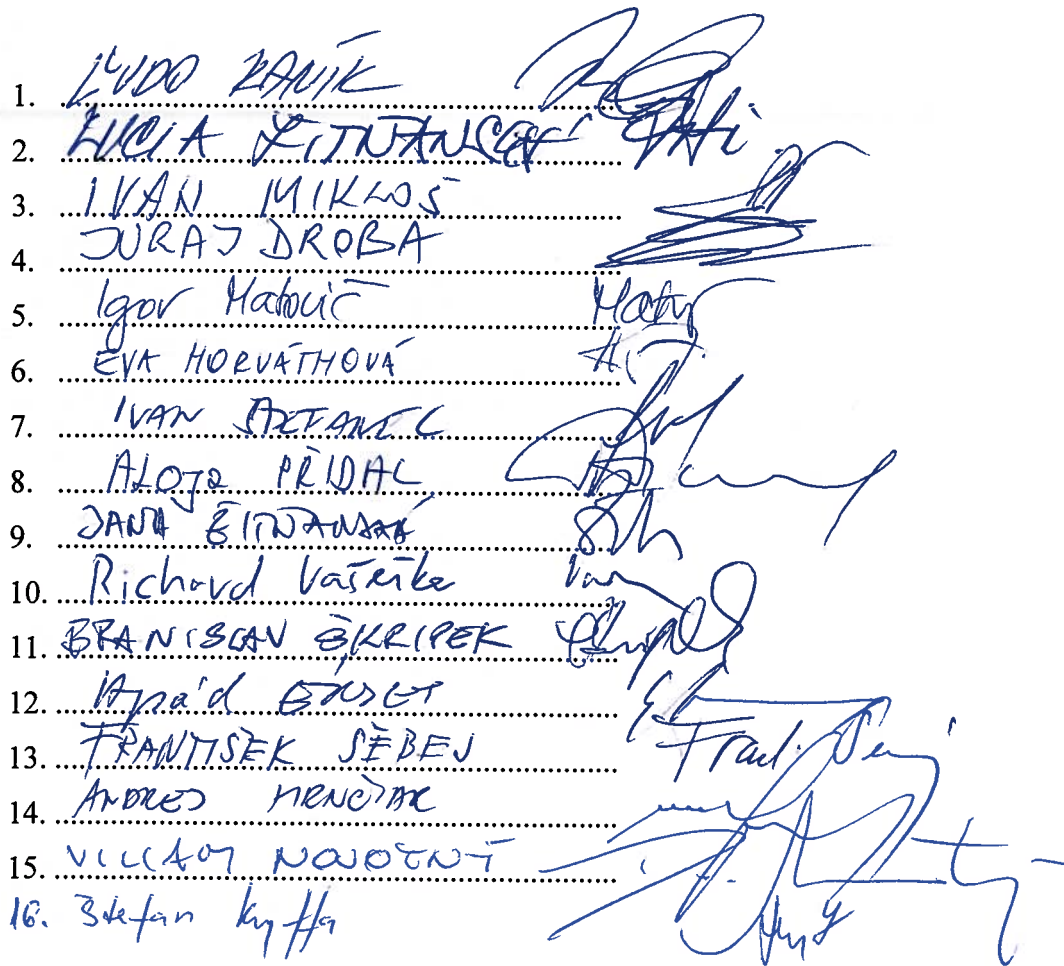 1. ĽUDO KANÍK
2. LUCIA ŽITŇANSKÁ
3. IVAN MIKLOŠ
4. JURAJ DROBA
5. Igor Matovič
6. EVA HORVÁTHOVÁ
7. IVAN ŠTEFANEC
8. ALOJZ PŘIDAL
9. JANA ŽITŇANSKÁ
10. Richard Vašečka
11. BRANISLAV ŠKRIPEK
12. Árpád ÉRSEK
13. FRANTIŠEK ŠEBEJ
14. ANDREJ HRNČIAR
15. VILIAM NOVOTNÝ
16. Štefan Kuffa